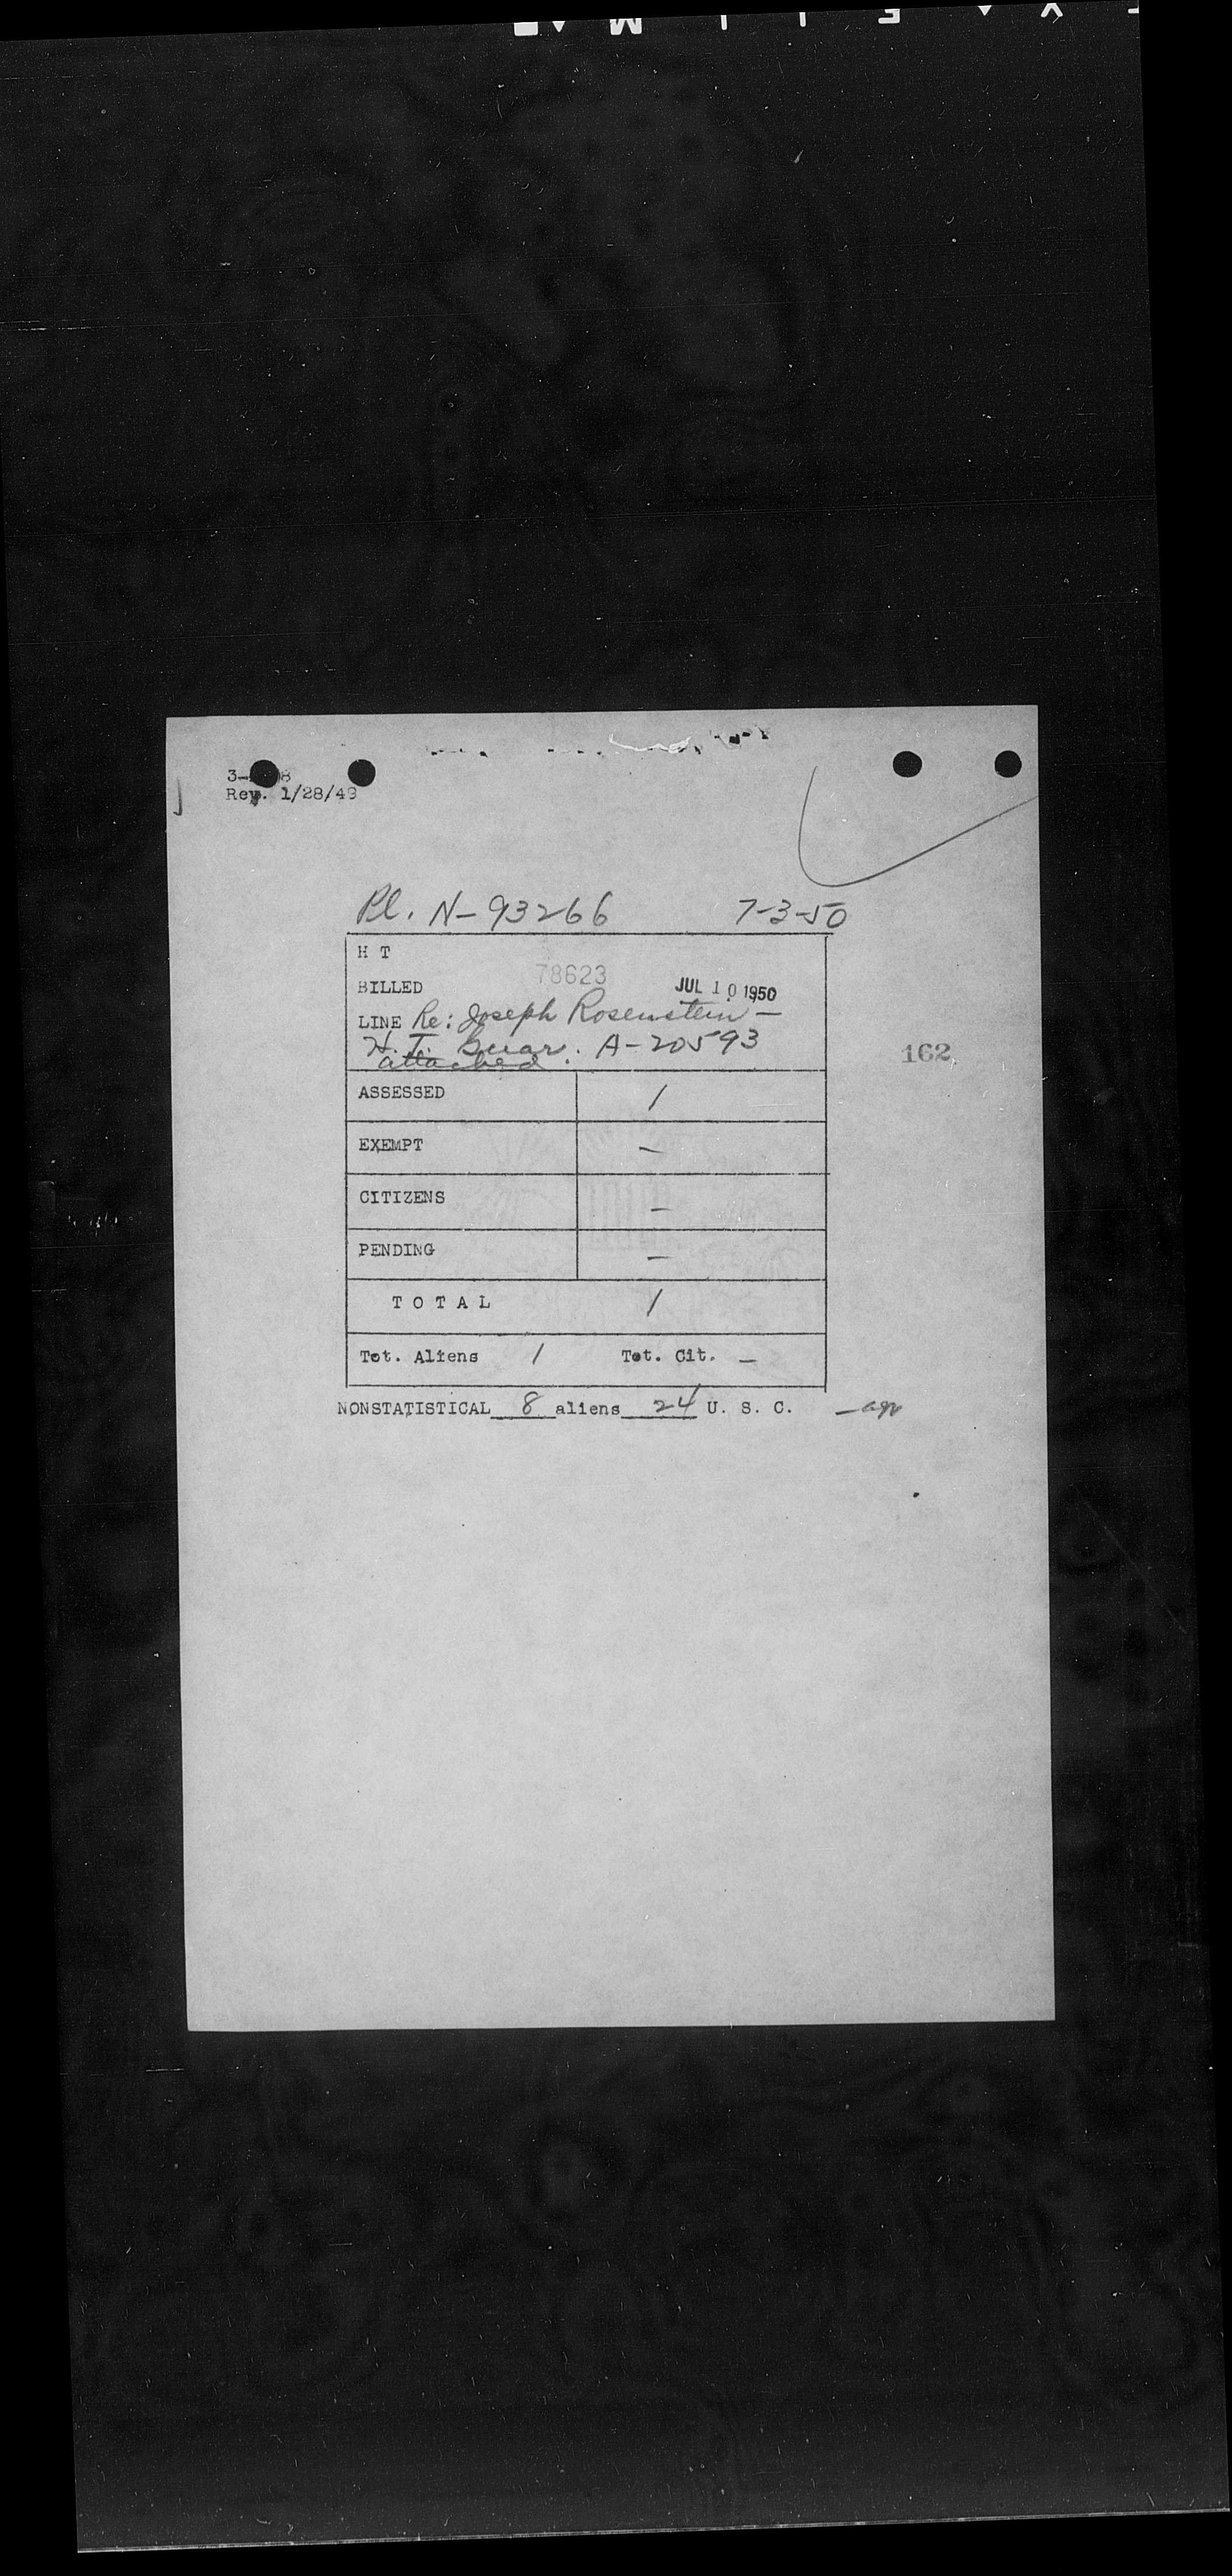 Rev. 1/28/49
Pl. N-93266 7-3-50
H T
78623
BILLED JUL 10 1950
LINE Re: Joseph Rosenstein -
H. T. Guar. A-20593
attached
162
ASSESSED 1
EXEMPT -
CITIZENS -
PENDING -
TOTAL 1
Tot. Aliens 1 Tot. Cit. -
NONSTATISTICAL 8 aliens 24 U. S. C.